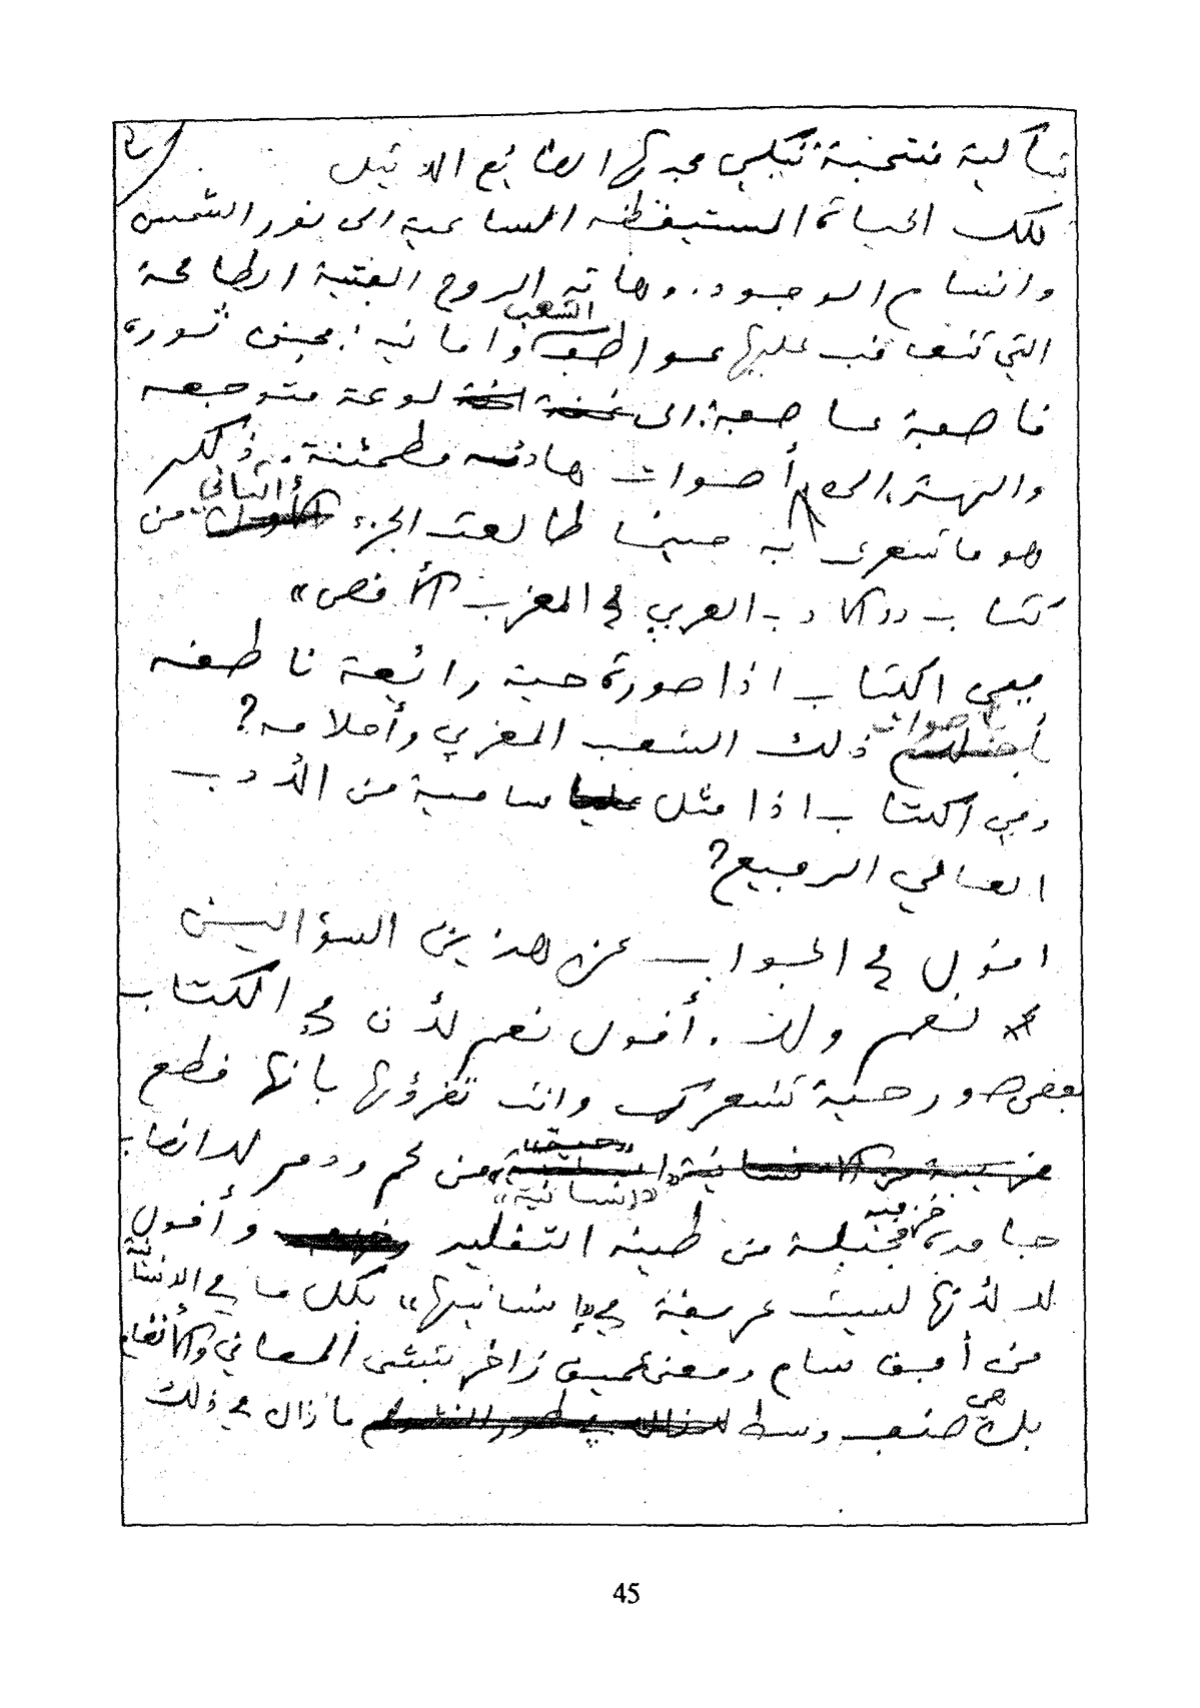 باكية منتحبة تبكي مجدها الضائع الاثيل
تلك الحياة المستيقظة الساعية الى نور الشمس
وانسام الوجود. وهاته الروح الفتية الطامحة
التي تتعاقب عليها عواطف الشعب وامانيه: بحبن ثورة
قاصبة عاصبة. الى لوعة متوجعة
والهة. الى أصوات هادئة مطمئنة. ذلكم
هو ما تشعر به حينما طالعت الجزء الثاني من
كتاب «الادب العربي في المغرب الأقصى»
ففي الكتاب اذا صورة حية رائعة ناطقة
بأصوات ذلك الشعب المغربي وأحلامه؟
وفي الكتاب اذا مثل سامية من الأدب
العالي الرفيع؟
اقول في الجواب عن هذين السؤالين
نعم ولا. أقول نعم لأن في الكتاب
بعض صور حية تشعرك وانت تقرؤها بانها قطع
«انسانية» «حية» من لحم ودم لا انصاب
جامدة خزفية مجبلة من طينة التقليد وأقول
لا لأنها ليست عريقة في «إنسانيتها» بكل ما في الانسانية
من أفق سام ومعنى عميق زاخر بشتى المعاني والأنغام
بل هي صنف وسط ما زال في ذلك
45